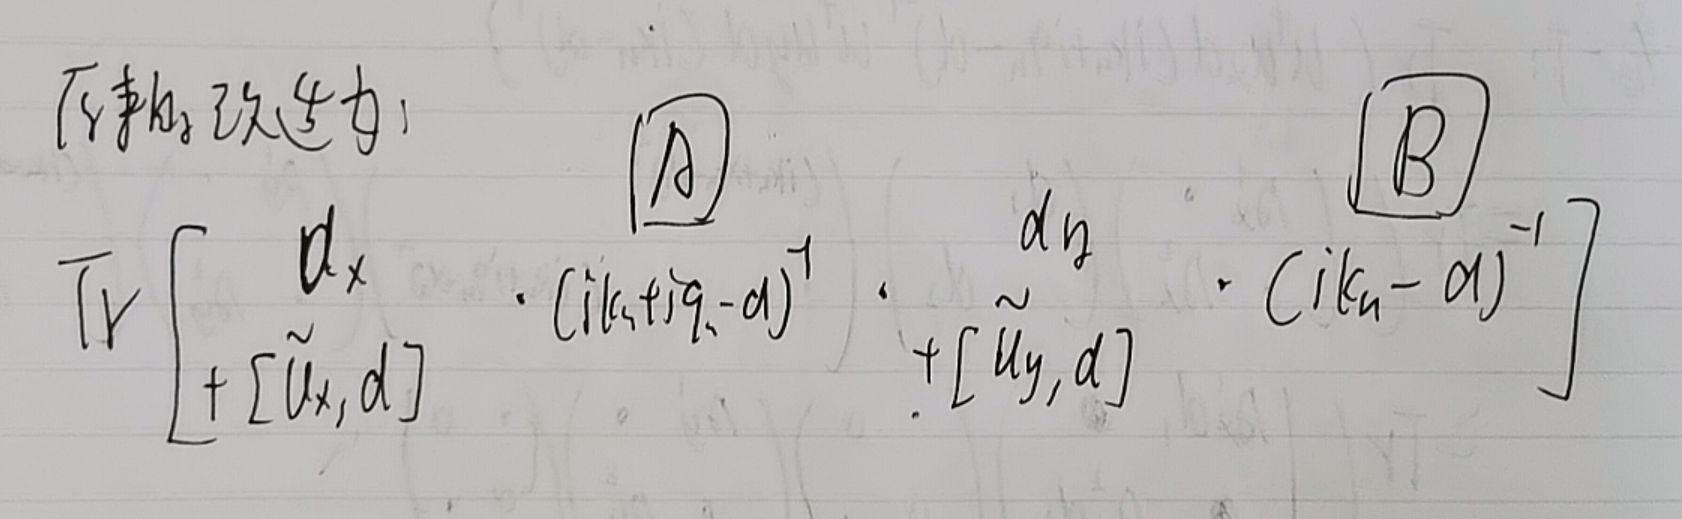 Tr 改造为:
A B
Tr [ d_x + [ũ_x, d] · (ik_n + iq_n - d)^{-1} · d_y + [ũ_y, d] · (ik_n - d)^{-1} ]